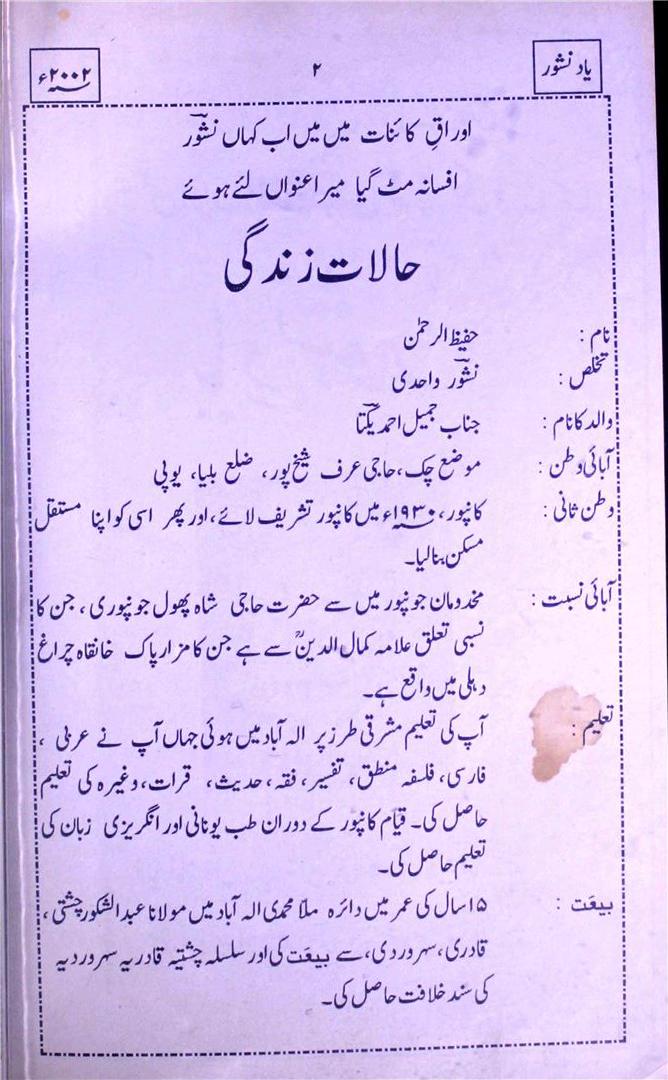 یاد نشور
۲
سنہ ۲۰۰۲ء
اوراقِ کائنات میں میں اب کہاں نشورؔ
افسانہ مٹ گیا میرا عنواں لئے ہوئے
حالات زندگی
نام : حفیظ الرحمٰن
تخلص : نشورؔ واحدی
والد کا نام : جناب جمیل احمد یکتاؔ
آبائی وطن : موضع چک، حاجی عرف شیخ پور، ضلع بلیا، یوپی
وطن ثانی : کانپور، سنہ ۱۹۳۰ء میں کانپور تشریف لائے، اور پھر اسی کو اپنا مستقل
مسکن بنالیا۔
آبائی نسبت : مخدومان جونپور میں سے حضرت حاجی شاہ پھول جونپوری، جن کا
نسبی تعلق علامہ کمال الدینؒ سے ہے جن کا مزار پاک خانقاہ چراغ
دہلی میں واقع ہے۔
تعلیم : آپ کی تعلیم مشرقی طرز پر الہ آباد میں ہوئی جہاں آپ نے عربی ،
فارسی، فلسفہ منطق، تفسیر، فقہ، حدیث، قرات، وغیرہ کی تعلیم
حاصل کی۔ قیام کانپور کے دوران طب یونانی اور انگریزی زبان کی
تعلیم حاصل کی۔
بیعَت : ۱۵ سال کی عمر میں دائرہ ملاّ محمدی الہ آباد میں مولانا عبدالشکور چشتی ،
قادری، سہروردی، سے بیعَت کی اور سلسلہ چشتیہ قادریہ سہروردیہ
کی سند خلافت حاصل کی۔